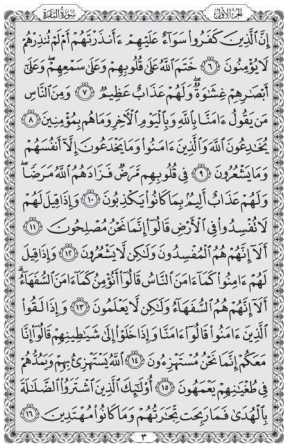 الجزء الأول
سورة البقرة
إِنَّ ٱلَّذِينَ كَفَرُوا۟ سَوَآءٌ عَلَيْهِمْ ءَأَنذَرْتَهُمْ أَمْ لَمْ تُنذِرْهُمْ
لَا يُؤْمِنُونَ ٦ خَتَمَ ٱللَّهُ عَلَىٰ قُلُوبِهِمْ وَعَلَىٰ سَمْعِهِمْ وَعَلَىٰٓ
أَبْصَٰرِهِمْ غِشَٰوَةٌ وَلَهُمْ عَذَابٌ عَظِيمٌ ٧ وَمِنَ ٱلنَّاسِ
مَن يَقُولُ ءَامَنَّا بِٱللَّهِ وَبِٱلْيَوْمِ ٱلْءَاخِرِ وَمَا هُم بِمُؤْمِنِينَ ٨
يُخَٰدِعُونَ ٱللَّهَ وَٱلَّذِينَ ءَامَنُوا۟ وَمَا يَخْدَعُونَ إِلَّآ أَنفُسَهُمْ
وَمَا يَشْعُرُونَ ٩ فِى قُلُوبِهِم مَّرَضٌ فَزَادَهُمُ ٱللَّهُ مَرَضًا
وَلَهُمْ عَذَابٌ أَلِيمٌۢ بِمَا كَانُوا۟ يَكْذِبُونَ ١٠ وَإِذَا قِيلَ لَهُمْ
لَا تُفْسِدُوا۟ فِى ٱلْأَرْضِ قَالُوٓا۟ إِنَّمَا نَحْنُ مُصْلِحُونَ ١١
أَلَآ إِنَّهُمْ هُمُ ٱلْمُفْسِدُونَ وَلَٰكِن لَّا يَشْعُرُونَ ١٢ وَإِذَا قِيلَ
لَهُمْ ءَامِنُوا۟ كَمَآ ءَامَنَ ٱلنَّاسُ قَالُوٓا۟ أَنُؤْمِنُ كَمَآ ءَامَنَ ٱلسُّفَهَآءُ
أَلَآ إِنَّهُمْ هُمُ ٱلسُّفَهَآءُ وَلَٰكِن لَّا يَعْلَمُونَ ١٣ وَإِذَا لَقُوا۟
ٱلَّذِينَ ءَامَنُوا۟ قَالُوٓا۟ ءَامَنَّا وَإِذَا خَلَوْا۟ إِلَىٰ شَيَٰطِينِهِمْ قَالُوٓا۟ إِنَّا
مَعَكُمْ إِنَّمَا نَحْنُ مُسْتَهْزِءُونَ ١٤ ٱللَّهُ يَسْتَهْزِئُ بِهِمْ وَيَمُدُّهُمْ
فِى طُغْيَٰنِهِمْ يَعْمَهُونَ ١٥ أُو۟لَٰٓئِكَ ٱلَّذِينَ ٱشْتَرَوُا۟ ٱلضَّلَٰلَةَ
بِٱلْهُدَىٰ فَمَا رَبِحَت تِّجَٰرَتُهُمْ وَمَا كَانُوا۟ مُهْتَدِينَ ١٦
٣